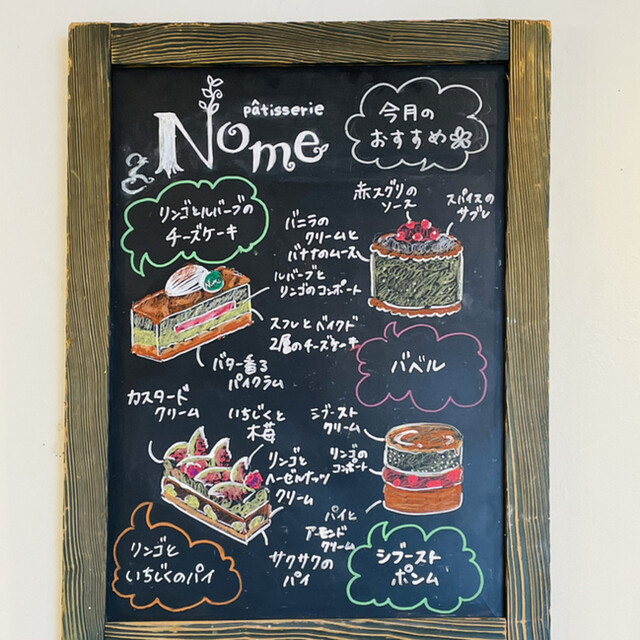 pâtisserie
Nome
今月の
おすすめ
リンゴとルバーブの
チーズケーキ
バニラの
クリームと
バナナのムース
赤スグリの
ソース
スパイスの
サブレ
ルバーブと
リンゴのコンポート
スフレとベイクド
2層のチーズケーキ
バター香る
パイクラム
バベル
カスタード
クリーム
いちじくと
木苺
リンゴと
ヘーゼルナッツ
クリーム
サクサクの
パイ
リンゴと
いちじくのパイ
シブースト
クリーム
リンゴの
コンポート
パイと
アーモンド
クリーム
シブースト
ポンム